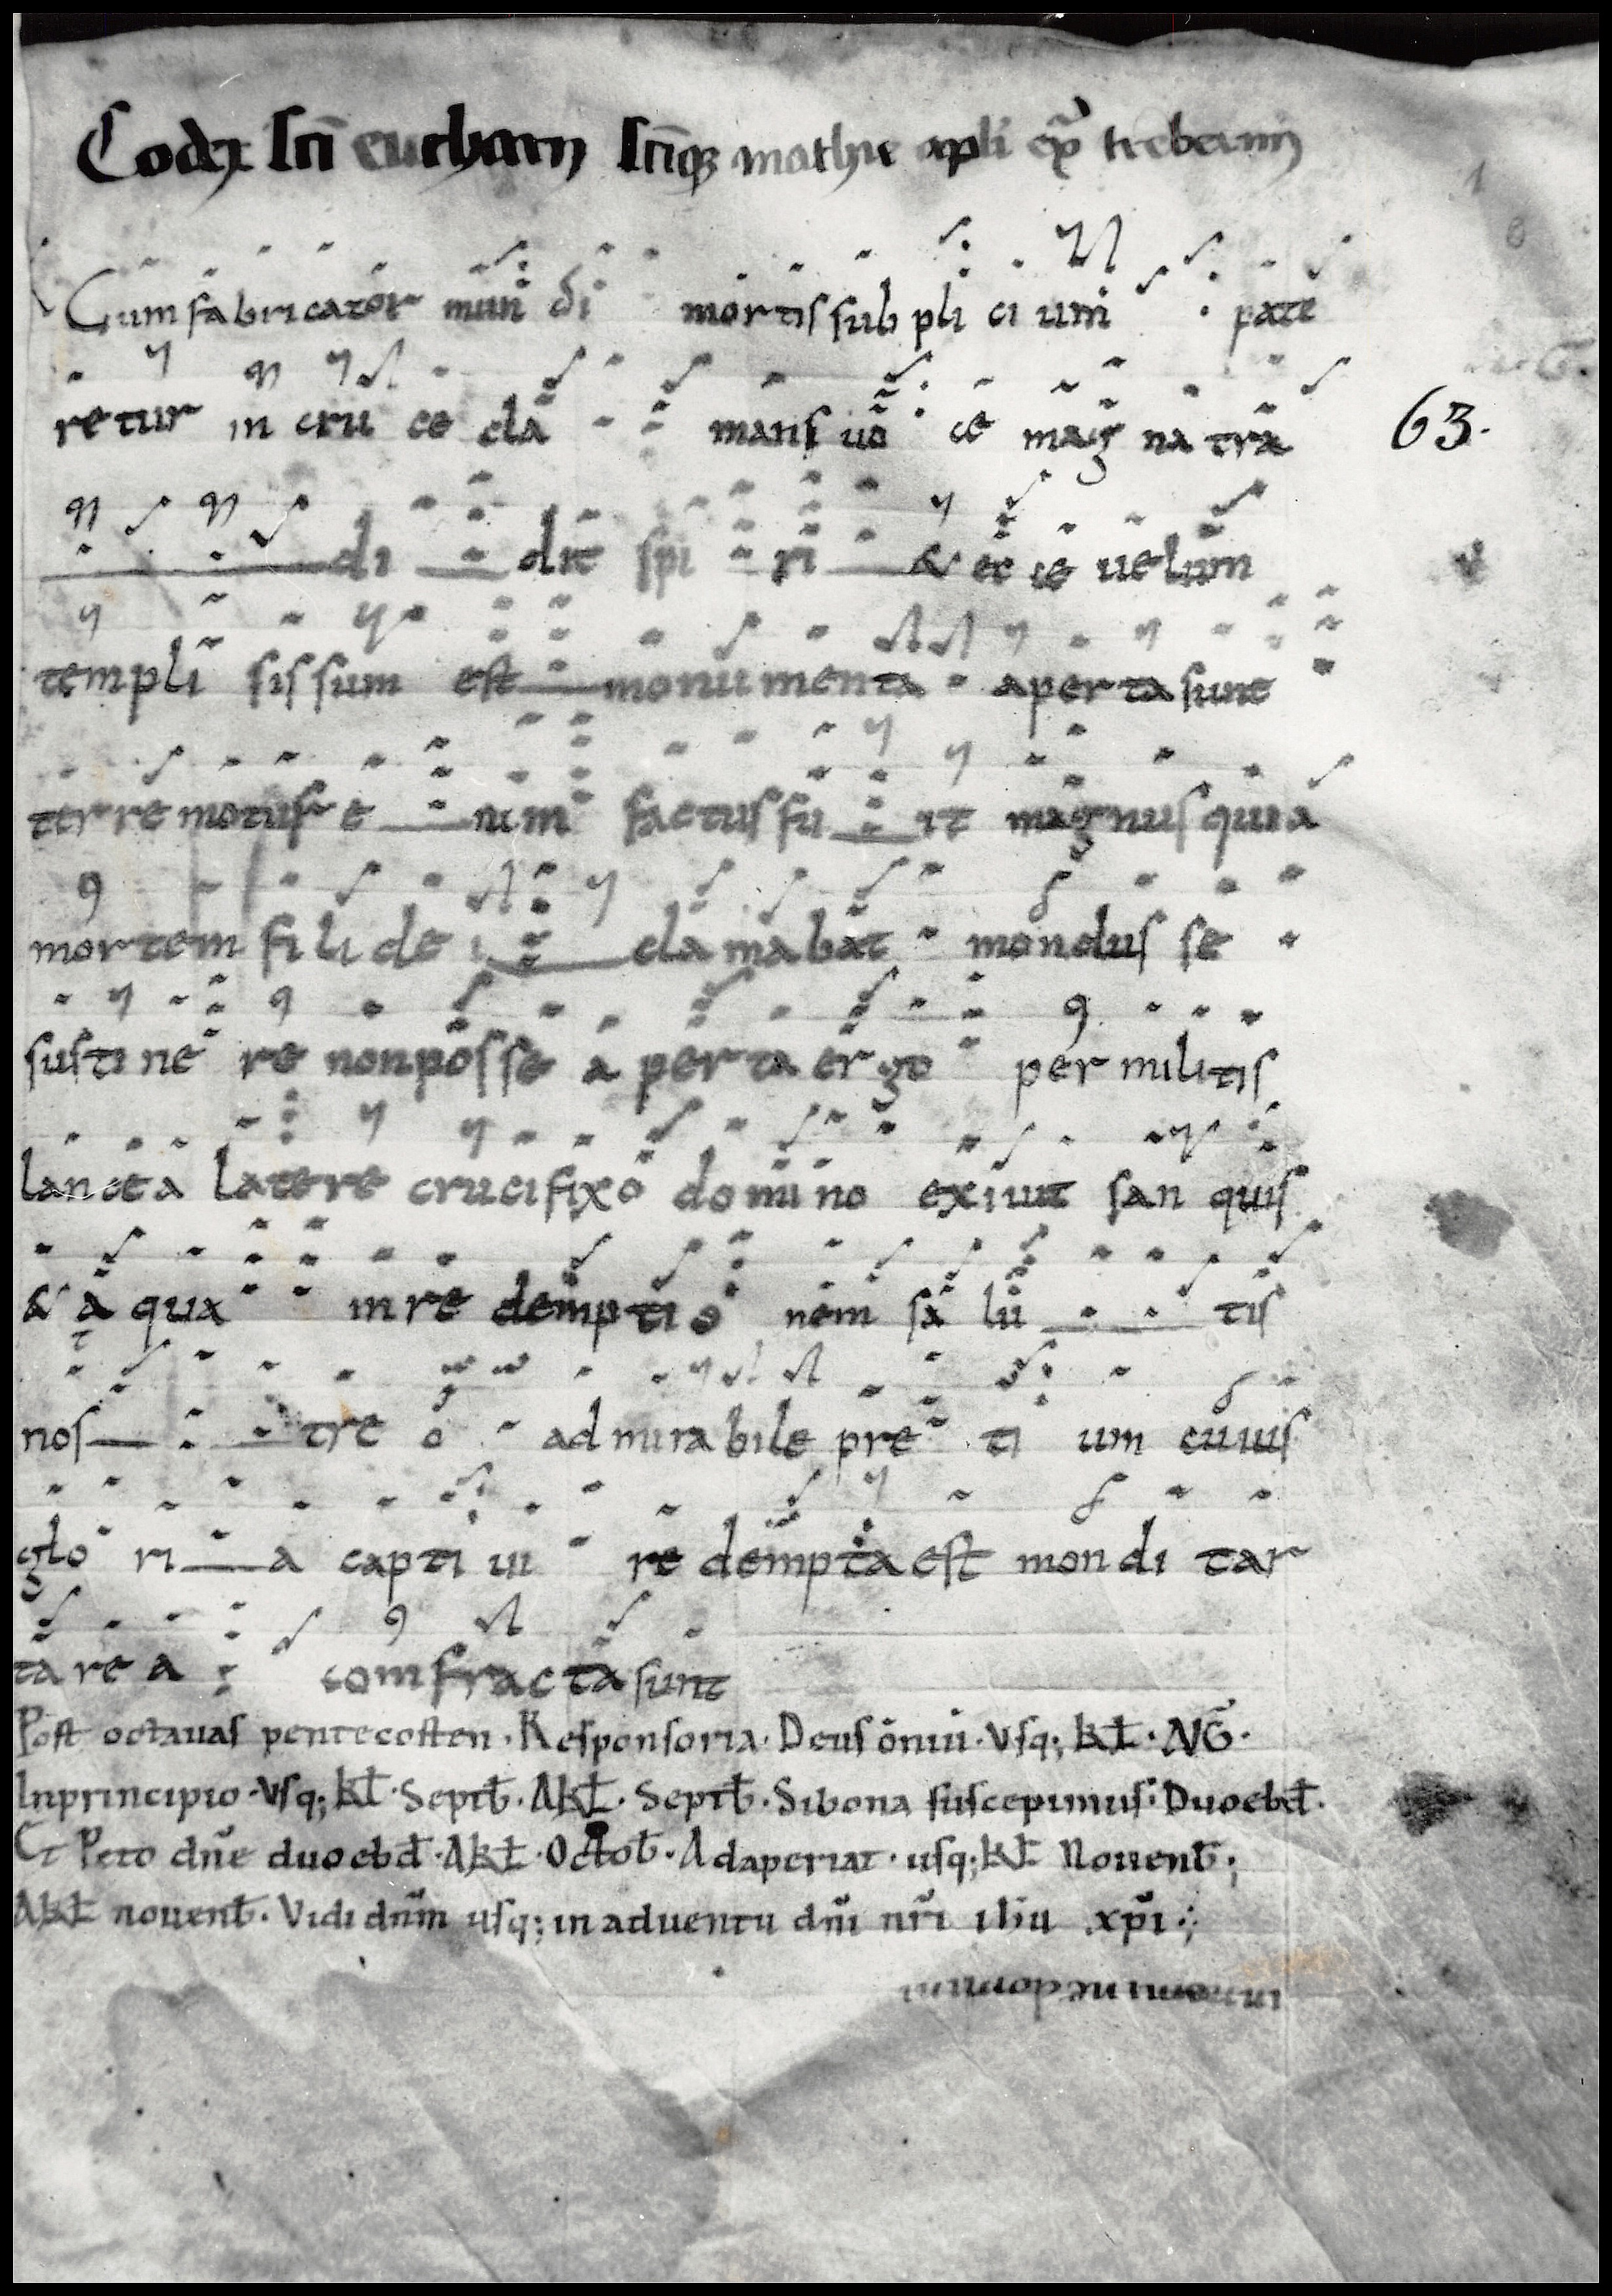 Codex scī eucharii scīqȝ mathie apłi ext̃ treberim
Cum fabricator mun di mortis sub pli ci um pate
retur in cru ce cla mans uo ce mag na tra
di dit spi ri & ec ce uelum
templi sissum est monumenta aperta sunt
terre motus e nim factus fu it magnus quia
mortem fili de i clamabat mondus se
sustine re non posse aperta ergo per militis
lancea latere crucifixo domino exiuit san quis
& aqua in re demptio nem sa lu tis
nos tre o admirabile pre ti um cuius
glo ri a capti ui re dempta est mondi tar
tarea comfracta sunt
Post octauas pentecosten · Responsoria · Deus omiū · Vsq; kł · AVG̅ ·
Inprincipio · Vsq; kł · Septƀ · A kł · Septƀ · Si bona suscepimus · Duo ebđ ·
Et Peto dñe duo ebđ · A kł · Octoƀ · Adaperiat · usq; kł Nouenƀ ;
A kł nouenƀ · Vidi dñm usq; in aduentu dñi nr̃i ihū xp̃i ;
63.